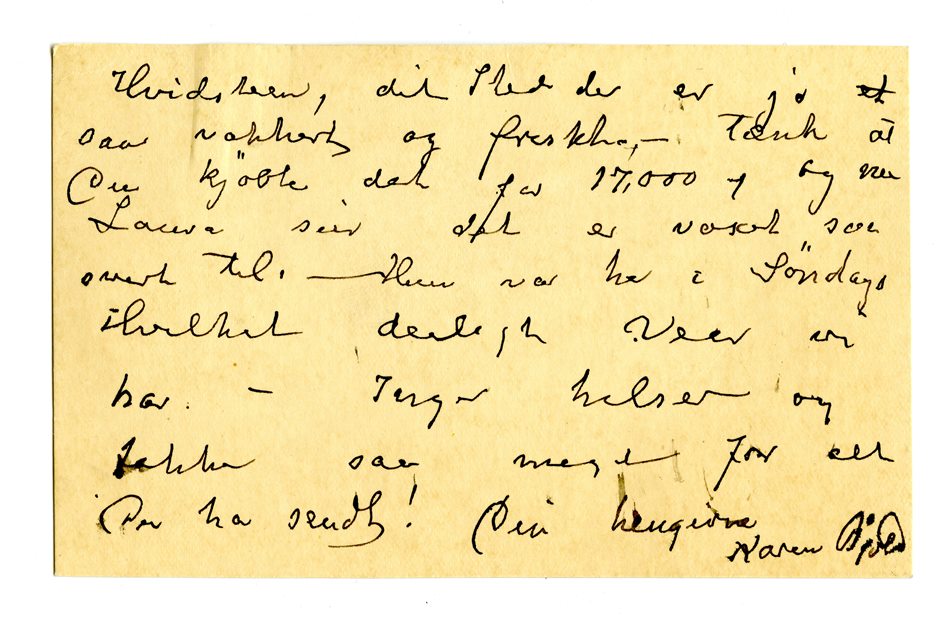 Hvidsteen, dit Sted der er jo et
saa vakkert og friskt, – Tænk at
De kjöbte det for 17,000 – og nu
Laura sier det er voxet saa
svært til. – Hun var her i Söndags
Hvilket deiligt Veer vi
har. – Inger hilser og
takker saa meget for alt
De ha sendt! Din hengivne
Karen